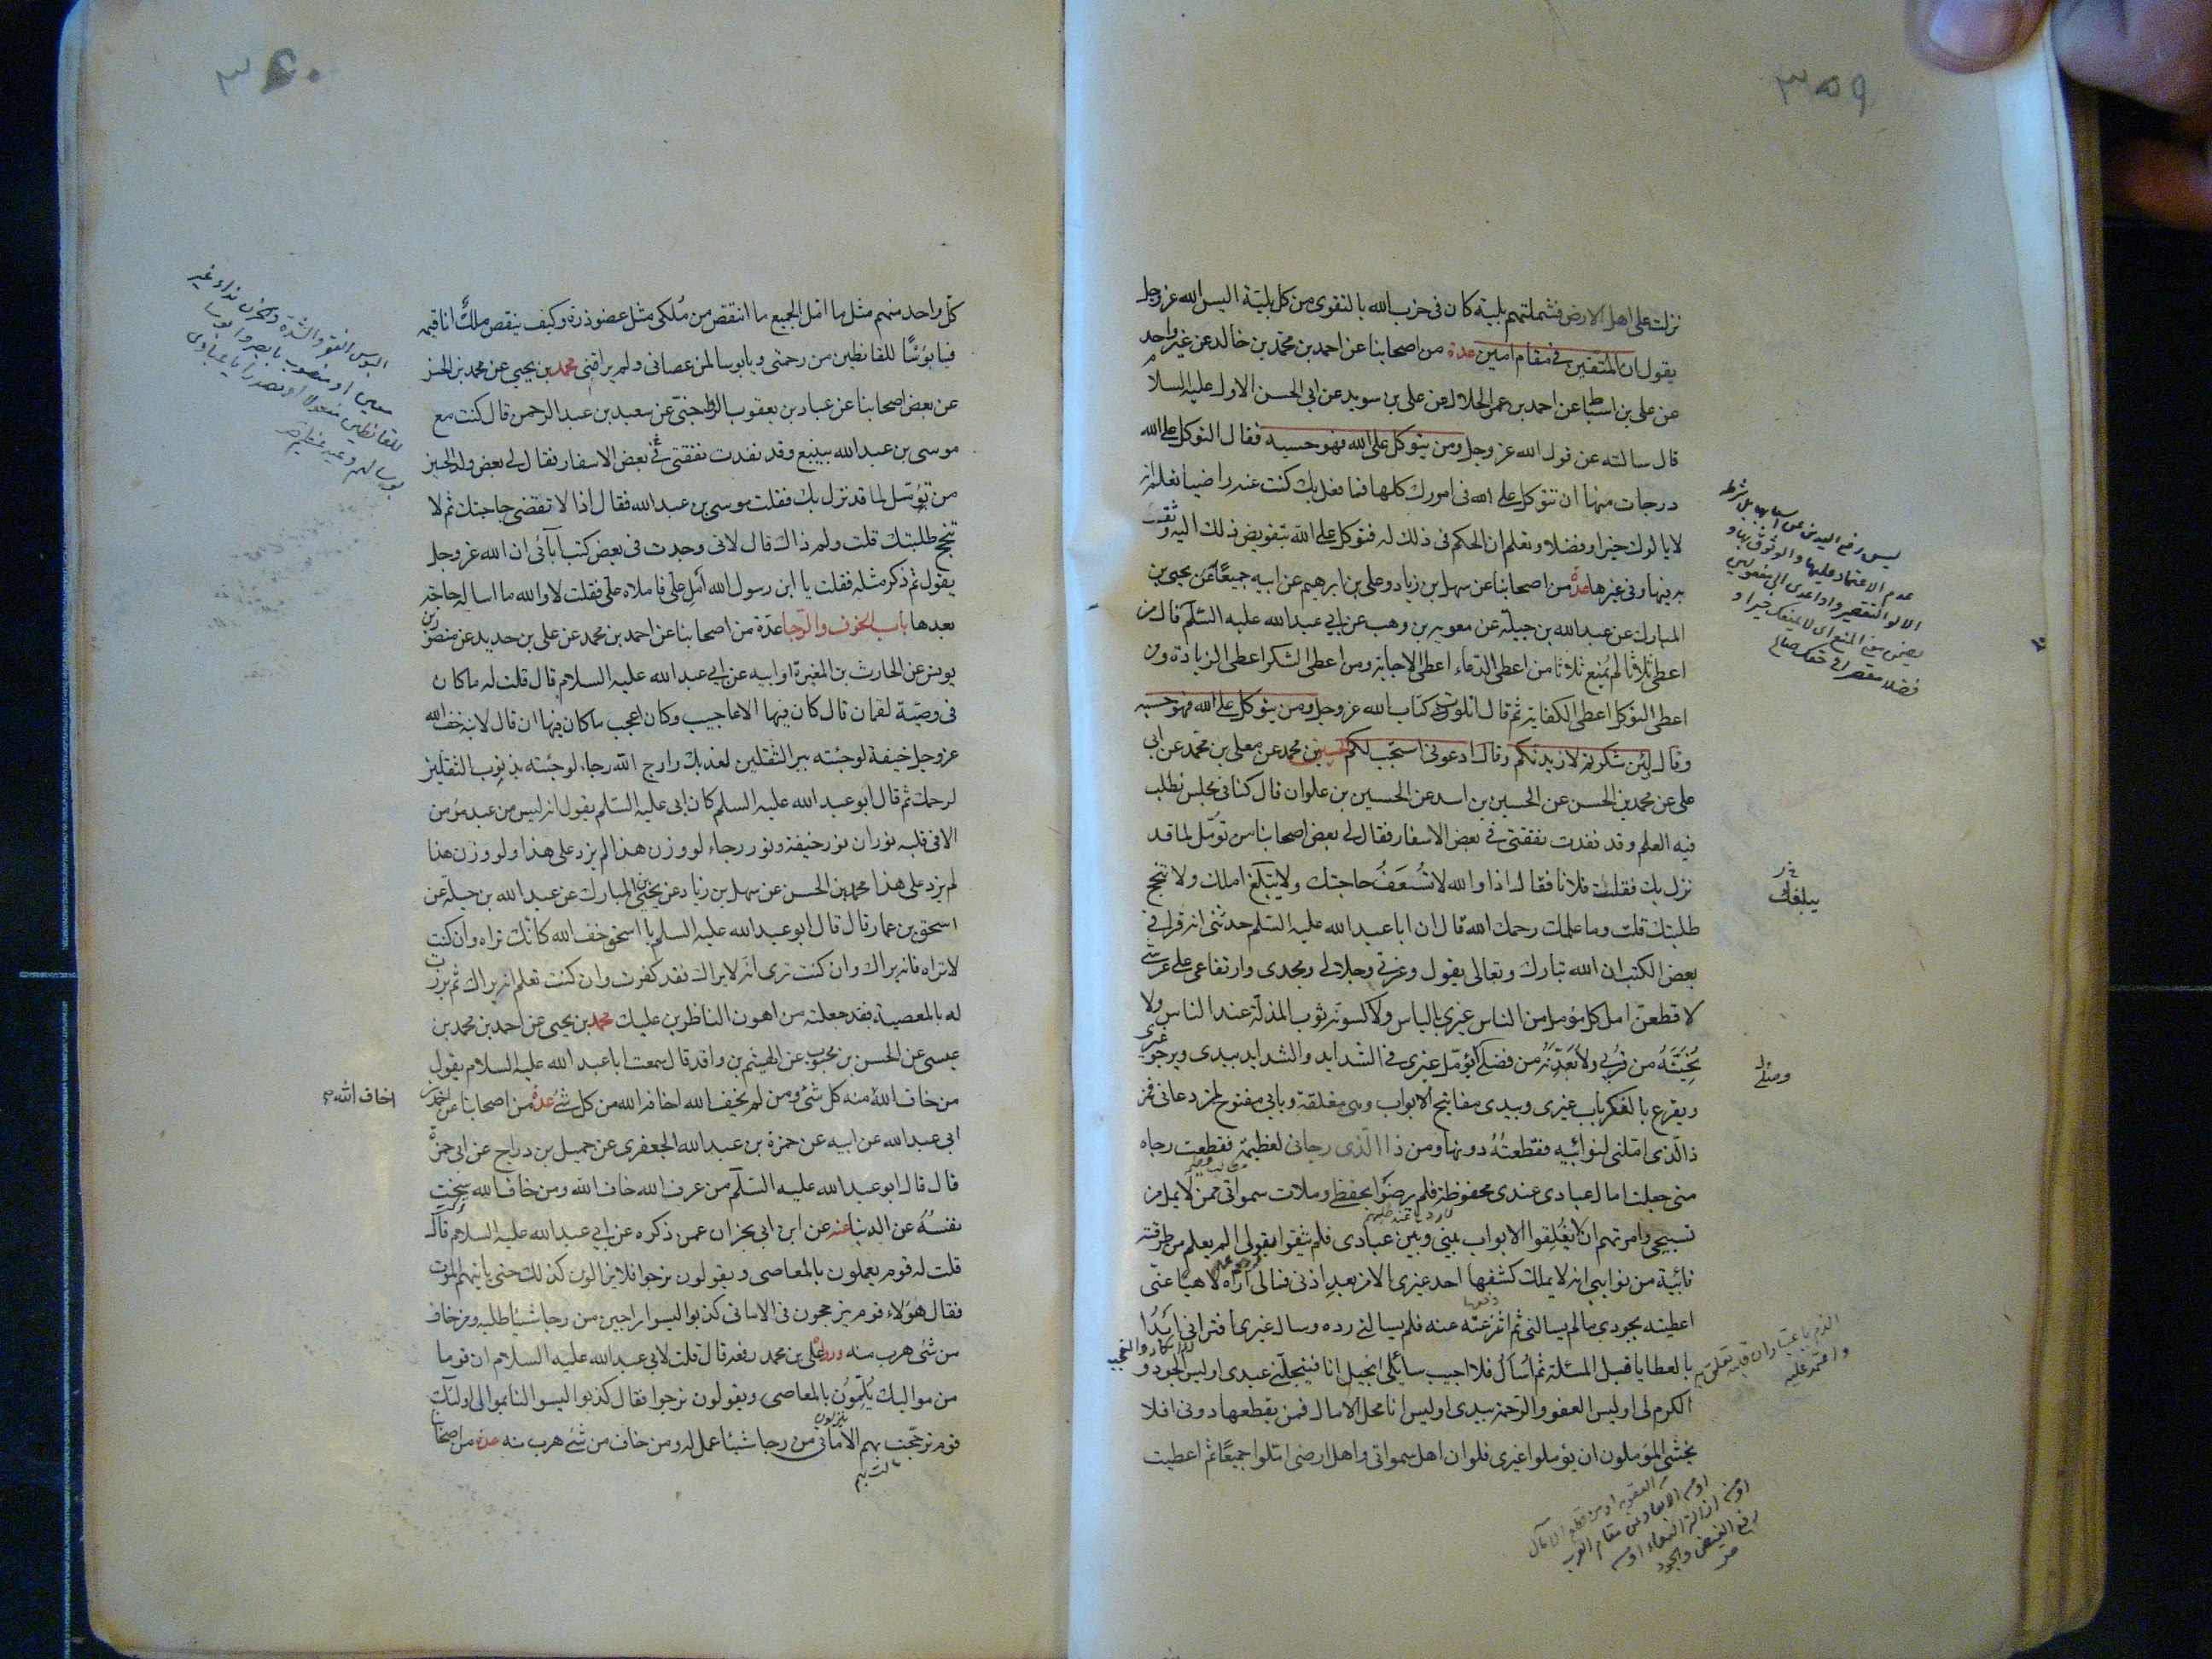 ٣٥٩
نزلت على اهل الارض فشملتهم بلية كان فى حزب الله بالتقوى من كل بلية اليس الله عز وجل
يقول ان المتقين فى مقام امين عدة من اصحابنا عن احمد بن محمد بن خالد عن غير واحد
عن على بن اسباط عن احمد بن عمر الحلال عن على بن سويد عن ابى الحسن الاول عليه السلام
قال سالته عن قول الله عز وجل ومن يتوكل على الله فهو حسبه فقال التوكل على الله
درجات منها ان تتوكل على الله فى امورك كلها فما فعل بك كنت عنه راضيا تعلم انه
لا يالوك خيرا وفضلا وتعلم ان الحكم فى ذلك له فتوكل على الله بتفويض ذلك اليه وثق
به فيها وفى غيرها عدة من اصحابنا عن سهل بن زياد وعلى بن ابرهيم عن ابيه جميعا عن يحيى بن
المبارك عن عبد الله بن جبلة عن معوية بن وهب عن ابى عبد الله عليه السلم قال من
اعطى ثلاثا لم يمنع ثلاثا من اعطى الدعاء اعطى الاجابة ومن اعطى الشكر اعطى الزيادة ومن
اعطى التوكل اعطى الكفاية ثم قال اتلوت كتاب الله عز وجل ومن يتوكل على الله فهو حسبه
وقال لئن شكرتم لازيدنكم وقال ادعونى استجب لكم الحسين بن محمد عن معلى بن محمد عن ابى
على عن محمد بن الحسن عن الحسين بن اسد عن الحسين بن علوان قال كنا فى مجلس نطلب
فيه العلم وقد نفدت نفقتى فى بعض الاسفار فقال لى بعض اصحابنا من تؤمل لما قد
نزل بك فقلت فلانا فقال اذا والله لا تسعف حاجتك ولا يبلغ املك ولا تنجح
طلبتك قلت وما علمك رحمك الله قال ان ابا عبد الله عليه السلم حدثنى انه قرا فى
بعض الكتب ان الله تبارك وتعالى يقول وعزتى وجلالى ومجدى وارتفاعى على عرشى
لاقطعن امل كل مؤمل من الناس غيرى بالياس ولاكسونه ثوب المذلة عند الناس ولا
نحينه من قربى ولابعدنه من فضلى ايؤمل غيرى فى الشدايد والشدايد بيدى ويرجو غيرى
ويقرع بالفكر باب غيرى وبيدى مفاتيح الابواب وهى مغلقة وبابى مفتوح لمن دعانى فمن
ذا الذى املنى لنوائبه فقطعته دونها ومن ذا الذى رجانى لعظيمة فقطعت رجاه
منى جعلت امال عبادى عندى محفوظة فلم يرضوا بحفظى وملات سمواتى ممن لا يمل من
تسبيحى وامرتهم ان لا يغلقوا الابواب بينى وبين عبادى فلم يثقوا بقولى الم يعلم من طرقته
نائبة من نوايبى انه لا يملك كشفها احد غيرى الا من بعد اذنى فمالى اراه لاهيا عنى
اعطيته بجودى ما لم يسالنى ثم انتزعته عنه فلم يسالنى رده وسال غيرى افترانى ابدا
بالعطايا قبل المسئلة ثم اسأل فلا اجيب سائلى ابخيل انا فيبخلنى عبدى اوليس الجود و
الكرم لى اوليس العفو والرحمة بيدى اوليس انا محل الامال فمن يقطعها دونى افلا
يخشى المؤملون ان يؤملوا غيرى فلو ان اهل سمواتى واهل ارضى املوا جميعا ثم اعطيت
عدم الاعتماد عليها والوثوق بها و
يبلغك
٣٦٠
كل واحد منهم مثل ما امل الجميع ما انتقص من ملكى مثل عضو ذرة وكيف ينقص ملك انا قيمه
فيا بؤسا للقانطين من رحمتى ويا بوسا لمن عصانى ولم يراقبنى محمد بن يحيى عن محمد بن الحسن
عن بعض اصحابنا عن عباد بن يعقوب الرواجنى عن سعيد بن عبد الرحمن قال كنت مع
موسى بن عبد الله بينبع وقد نفدت نفقتى فى بعض الاسفار فقال لى بعض ولد الحسين
من تؤمل لما قد نزل بك فقلت موسى بن عبد الله فقال اذا لا تقضى حاجتك ثم لا
تنجح طلبتك قلت ولم ذاك قال لانى وجدت فى بعض كتب آبائى ان الله عز وجل
يقول ثم ذكر مثله فقلت يا ابن رسول الله امل على فاملاه على فقلت لا والله ما اساله حاجة
بعدها باب الخوف والرجا عدة من اصحابنا عن احمد بن محمد عن على بن حديد عن منصور بن
يونس عن الحارث بن المغيرة او ابيه عن ابى عبد الله عليه السلام قال قلت له ما كان
فى وصية لقمان قال كان فيها الاعاجيب وكان اعجب ما كان فيها ان قال لابنه خف الله
عز وجل خيفة لو جئته ببر الثقلين لعذبك وارج الله رجاء لو جئته بذنوب الثقلين
لرحمك ثم قال ابو عبد الله عليه السلم كان ابى عليه السلم يقول انه ليس من عبد مؤمن
الا فى قلبه نوران نور خيفة ونور رجاء لو وزن هذا لم يزد على هذا ولو وزن هذا
لم يزد على هذا محمد بن الحسن عن سهل بن زياد عن يحيى بن المبارك عن عبد الله بن جبلة عن
اسحق بن عمار قال قال ابو عبد الله عليه السلم يا اسحق خف الله كانك تراه وان كنت
لا تراه فانه يراك وان كنت ترى انه لا يراك فقد كفرت وان كنت تعلم انه يراك ثم برزت
له بالمعصية فقد جعلته من اهون الناظرين عليك محمد بن يحيى عن احمد بن محمد بن
عيسى عن الحسن بن محبوب عن الهيثم بن واقد قال سمعت ابا عبد الله عليه السلام يقول
من خاف الله منه كل شئ ومن لم يخف الله اخافه الله من كل شئ عدة من اصحابنا عن احمد بن
ابى عبد الله عن ابيه عن حمزة بن عبد الله الجعفرى عن جميل بن دراج عن ابى حمزة
قال قال ابو عبد الله عليه السلم من عرف الله خاف الله ومن خاف الله سخت
نفسه عن الدنيا عنه عن ابن ابى نجران عمن ذكره عن ابى عبد الله عليه السلام قال
قلت له قوم يعملون بالمعاصى ويقولون نرجوا فلا يزالون كذلك حتى ياتيهم الموت
فقال هؤلاء قوم يترجحون فى الامانى كذبوا ليسوا راجين من رجا شيئا طلبه ومن خاف
من شئ هرب منه ورواه على بن محمد رفعه قال قلت لابى عبد الله عليه السلام ان قوما
من مواليك يلمون بالمعاصى ويقولون نرجوا فقال كذبوا ليسوا لنا بموال اولئك
قوم ترجحت بهم الامانى من رجا شيئا عمل له ومن خاف من شئ هرب منه عدة من اصحابنا
اخاف الله